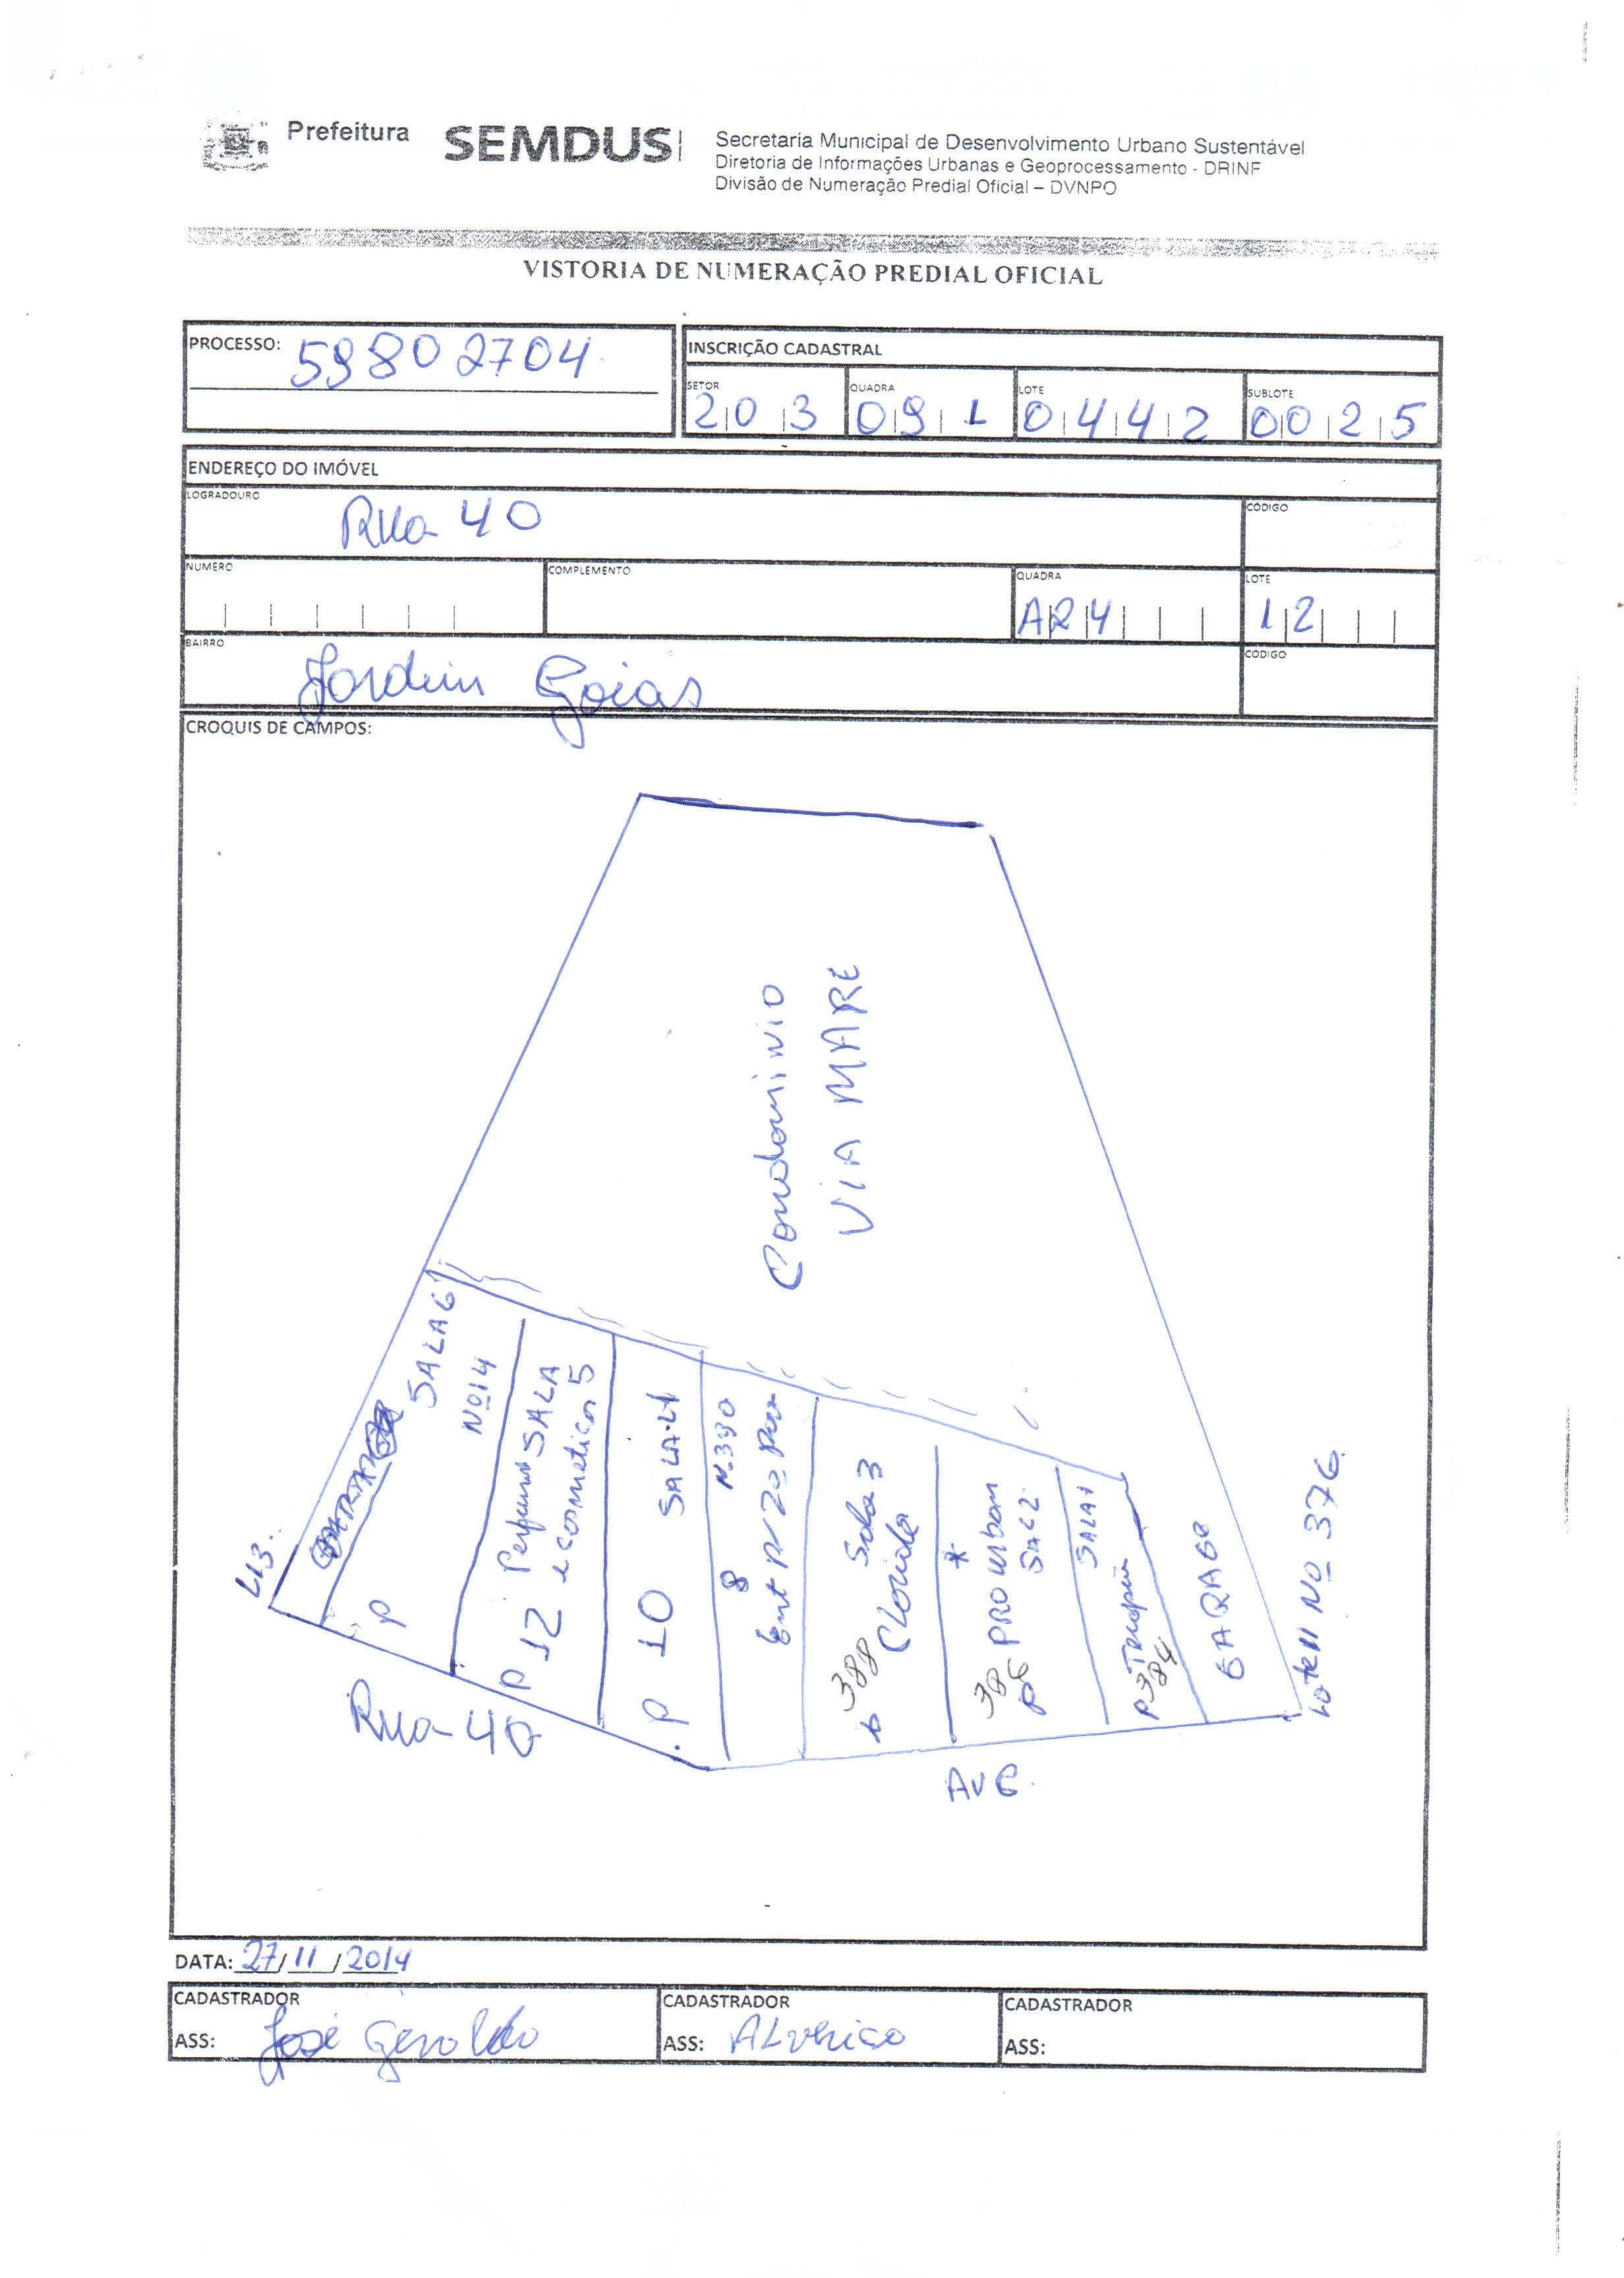 Prefeitura SEMDUS
Secretaria Municipal de Desenvolvimento Urbano Sustentável
Diretoria de Informações Urbanas e Geoprocessamento - DRINF
Divisão de Numeração Predial Oficial – DVNPO
VISTORIA DE NUMERAÇÃO PREDIAL OFICIAL
PROCESSO: 59802704
INSCRIÇÃO CADASTRAL
SETOR 203 QUADRA 091 LOTE 0442 SUBLOTE 0025
ENDEREÇO DO IMÓVEL
LOGRADOURO Rua 40 CÓDIGO
NUMERO COMPLEMENTO QUADRA AR4 LOTE 12
BAIRRO Jardim Goias CÓDIGO
CROQUIS DE CAMPOS:
Condominio
VIA MARE
L13.
SALA 6
Nº 14
P
SALA
P 12 e cosmeticos 5
P 10 SALA 4
8 N. 390
Ent
388 Sala 3
386 PRO urbam
P SAL 2
SALA 1
P 384
GARAGE
Lote 11 Nº 376
Rua 40
AV E
DATA: 27/11/2014
CADASTRADOR CADASTRADOR CADASTRADOR
ASS: José Geraldo ASS: ALverico ASS: